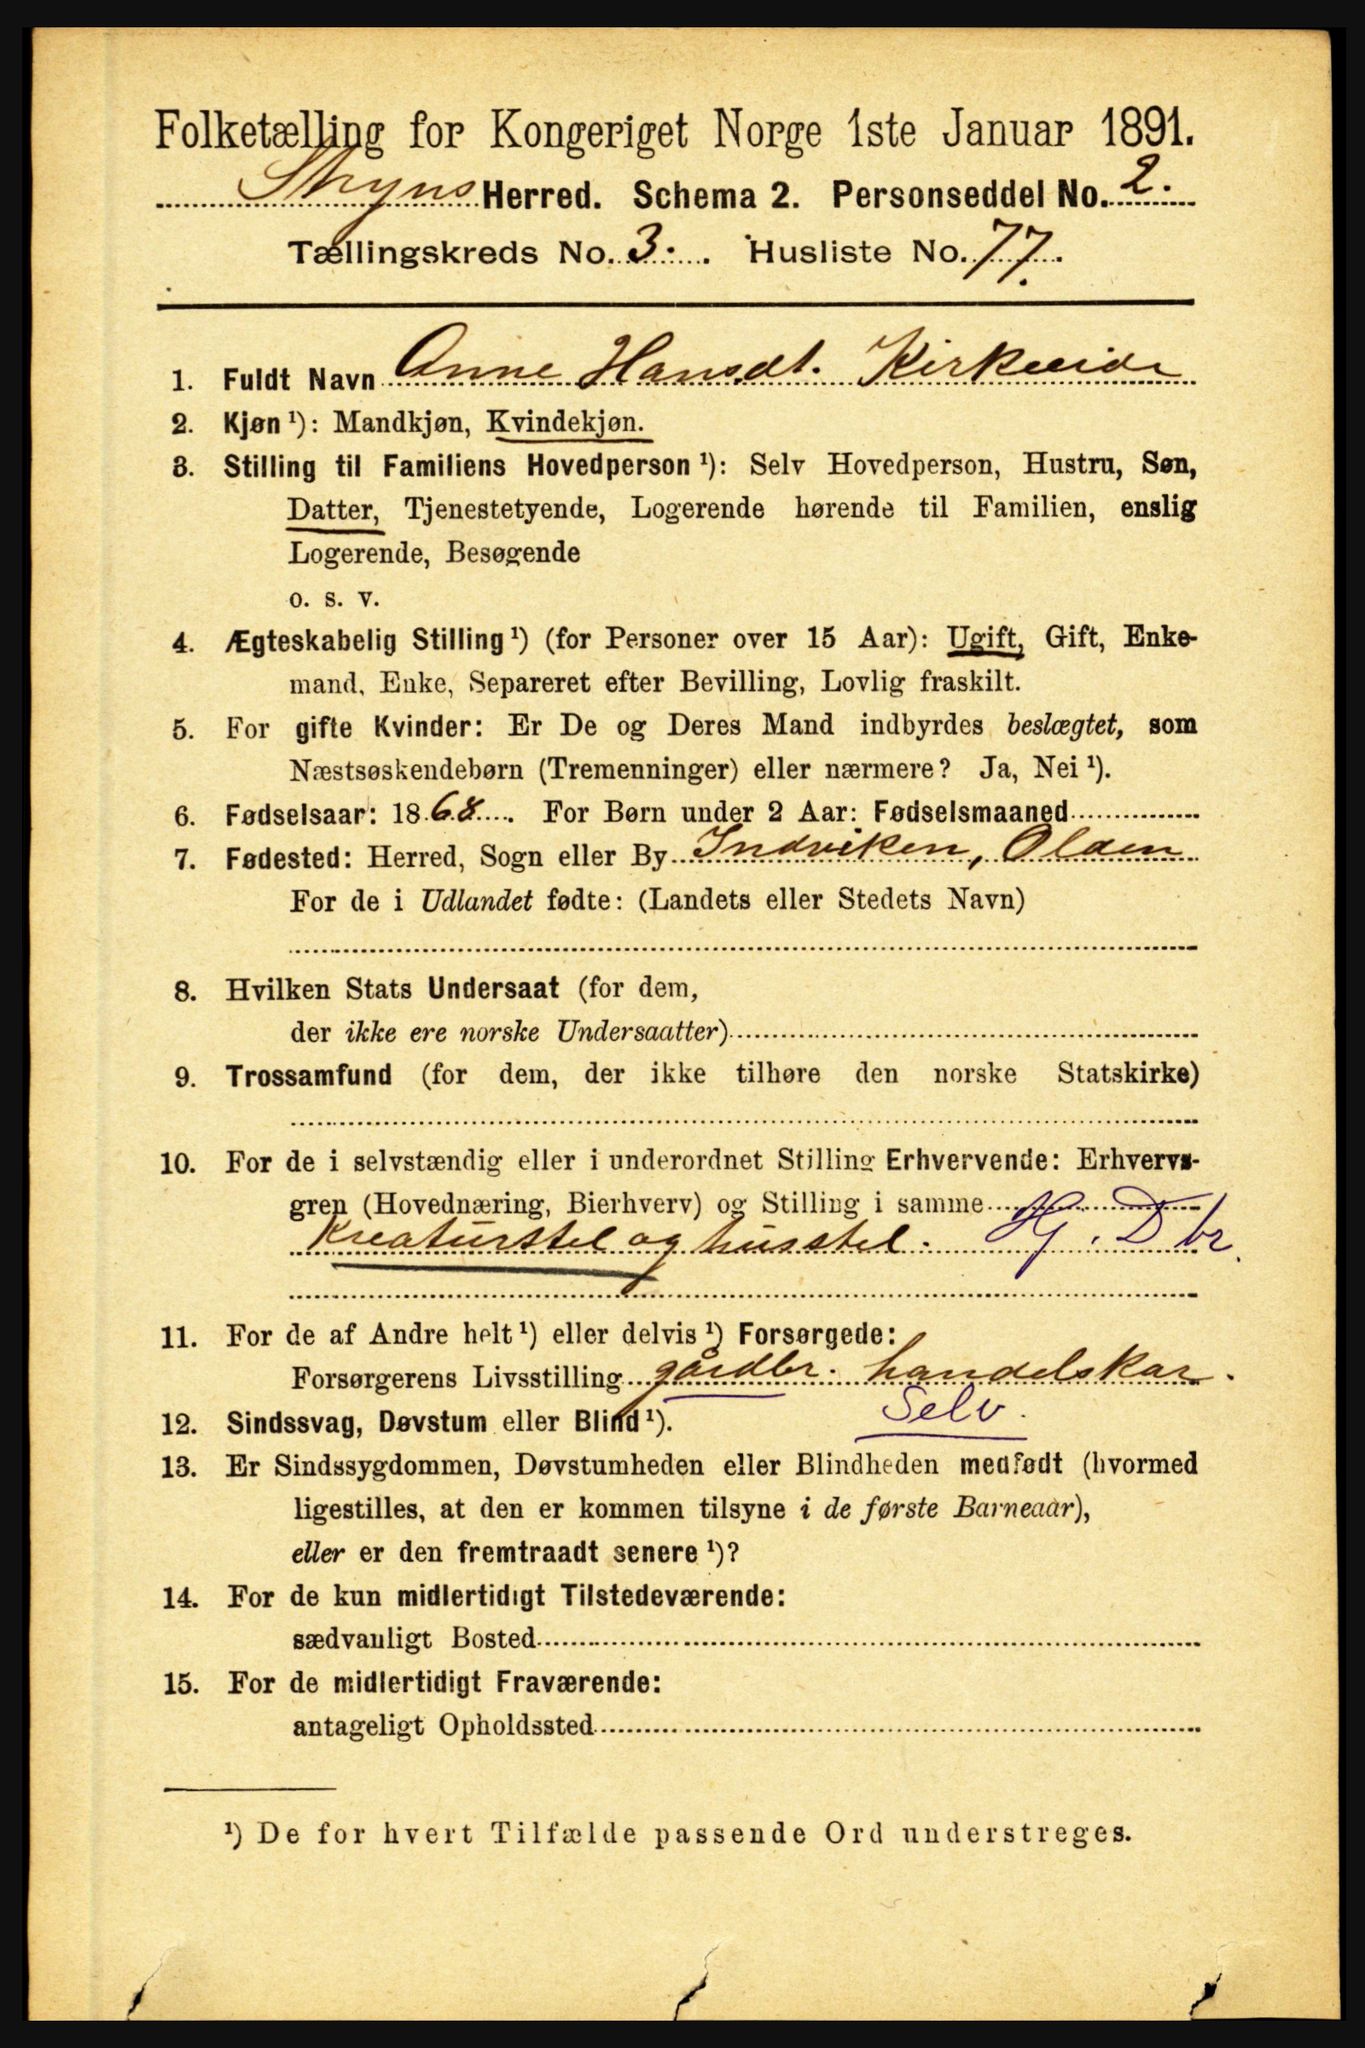 Folketælling for Kongeriget Norge 1ste Januar 1891.
Stryns Herred. Schema 2. Personseddel No. 2.
Tællingskreds No. 3. Husliste No. 77.
1. Fuldt Navn Anne Hansdt. Kirkeeide
2. Kjøn ¹): Mandkjøn, Kvindekjøn.
3. Stilling til Familiens Hovedperson ¹): Selv Hovedperson, Hustru, Søn,
Datter, Tjenestetyende, Logerende hørende til Familien, enslig
Logerende, Besøgende
o. s. v.
4. Ægteskabelig Stilling ¹) (for Personer over 15 Aar): Ugift, Gift, Enke-
mand, Enke, Separeret efter Bevilling, Lovlig fraskilt.
5. For gifte Kvinder: Er De og Deres Mand indbyrdes beslægtet, som
Næstsøskendebørn (Tremenninger) eller nærmere? Ja, Nei ¹).
6. Fødselsaar: 1868. For Børn under 2 Aar: Fødselsmaaned
7. Fødested: Herred, Sogn eller By Indviken, Olden
For de i Udlandet fødte: (Landets eller Stedets Navn)
8. Hvilken Stats Undersaat (for dem,
der ikke ere norske Undersaatter)
9. Trossamfund (for dem, der ikke tilhøre den norske Statskirke)
10. For de i selvstændig eller i underordnet Stilling Erhvervende: Erhvervs-
gren (Hovednæring, Bierhverv) og Stilling i samme
Kreaturstel og husstel. Hj. D br.
11. For de af Andre helt ¹) eller delvis ¹) Forsørgede:
Forsørgerens Livsstilling gårdbr. handelskar.
12. Sindssvag, Døvstum eller Blind ¹). Selv.
13. Er Sindssygdommen, Døvstumheden eller Blindheden medfødt (hvormed
ligestilles, at den er kommen tilsyne i de første Barneaar),
eller er den fremtraadt senere ¹)?
14. For de kun midlertidigt Tilstedeværende:
sædvanligt Bosted
15. For de midlertidigt Fraværende:
antageligt Opholdssted
¹) De for hvert Tilfælde passende Ord understreges.